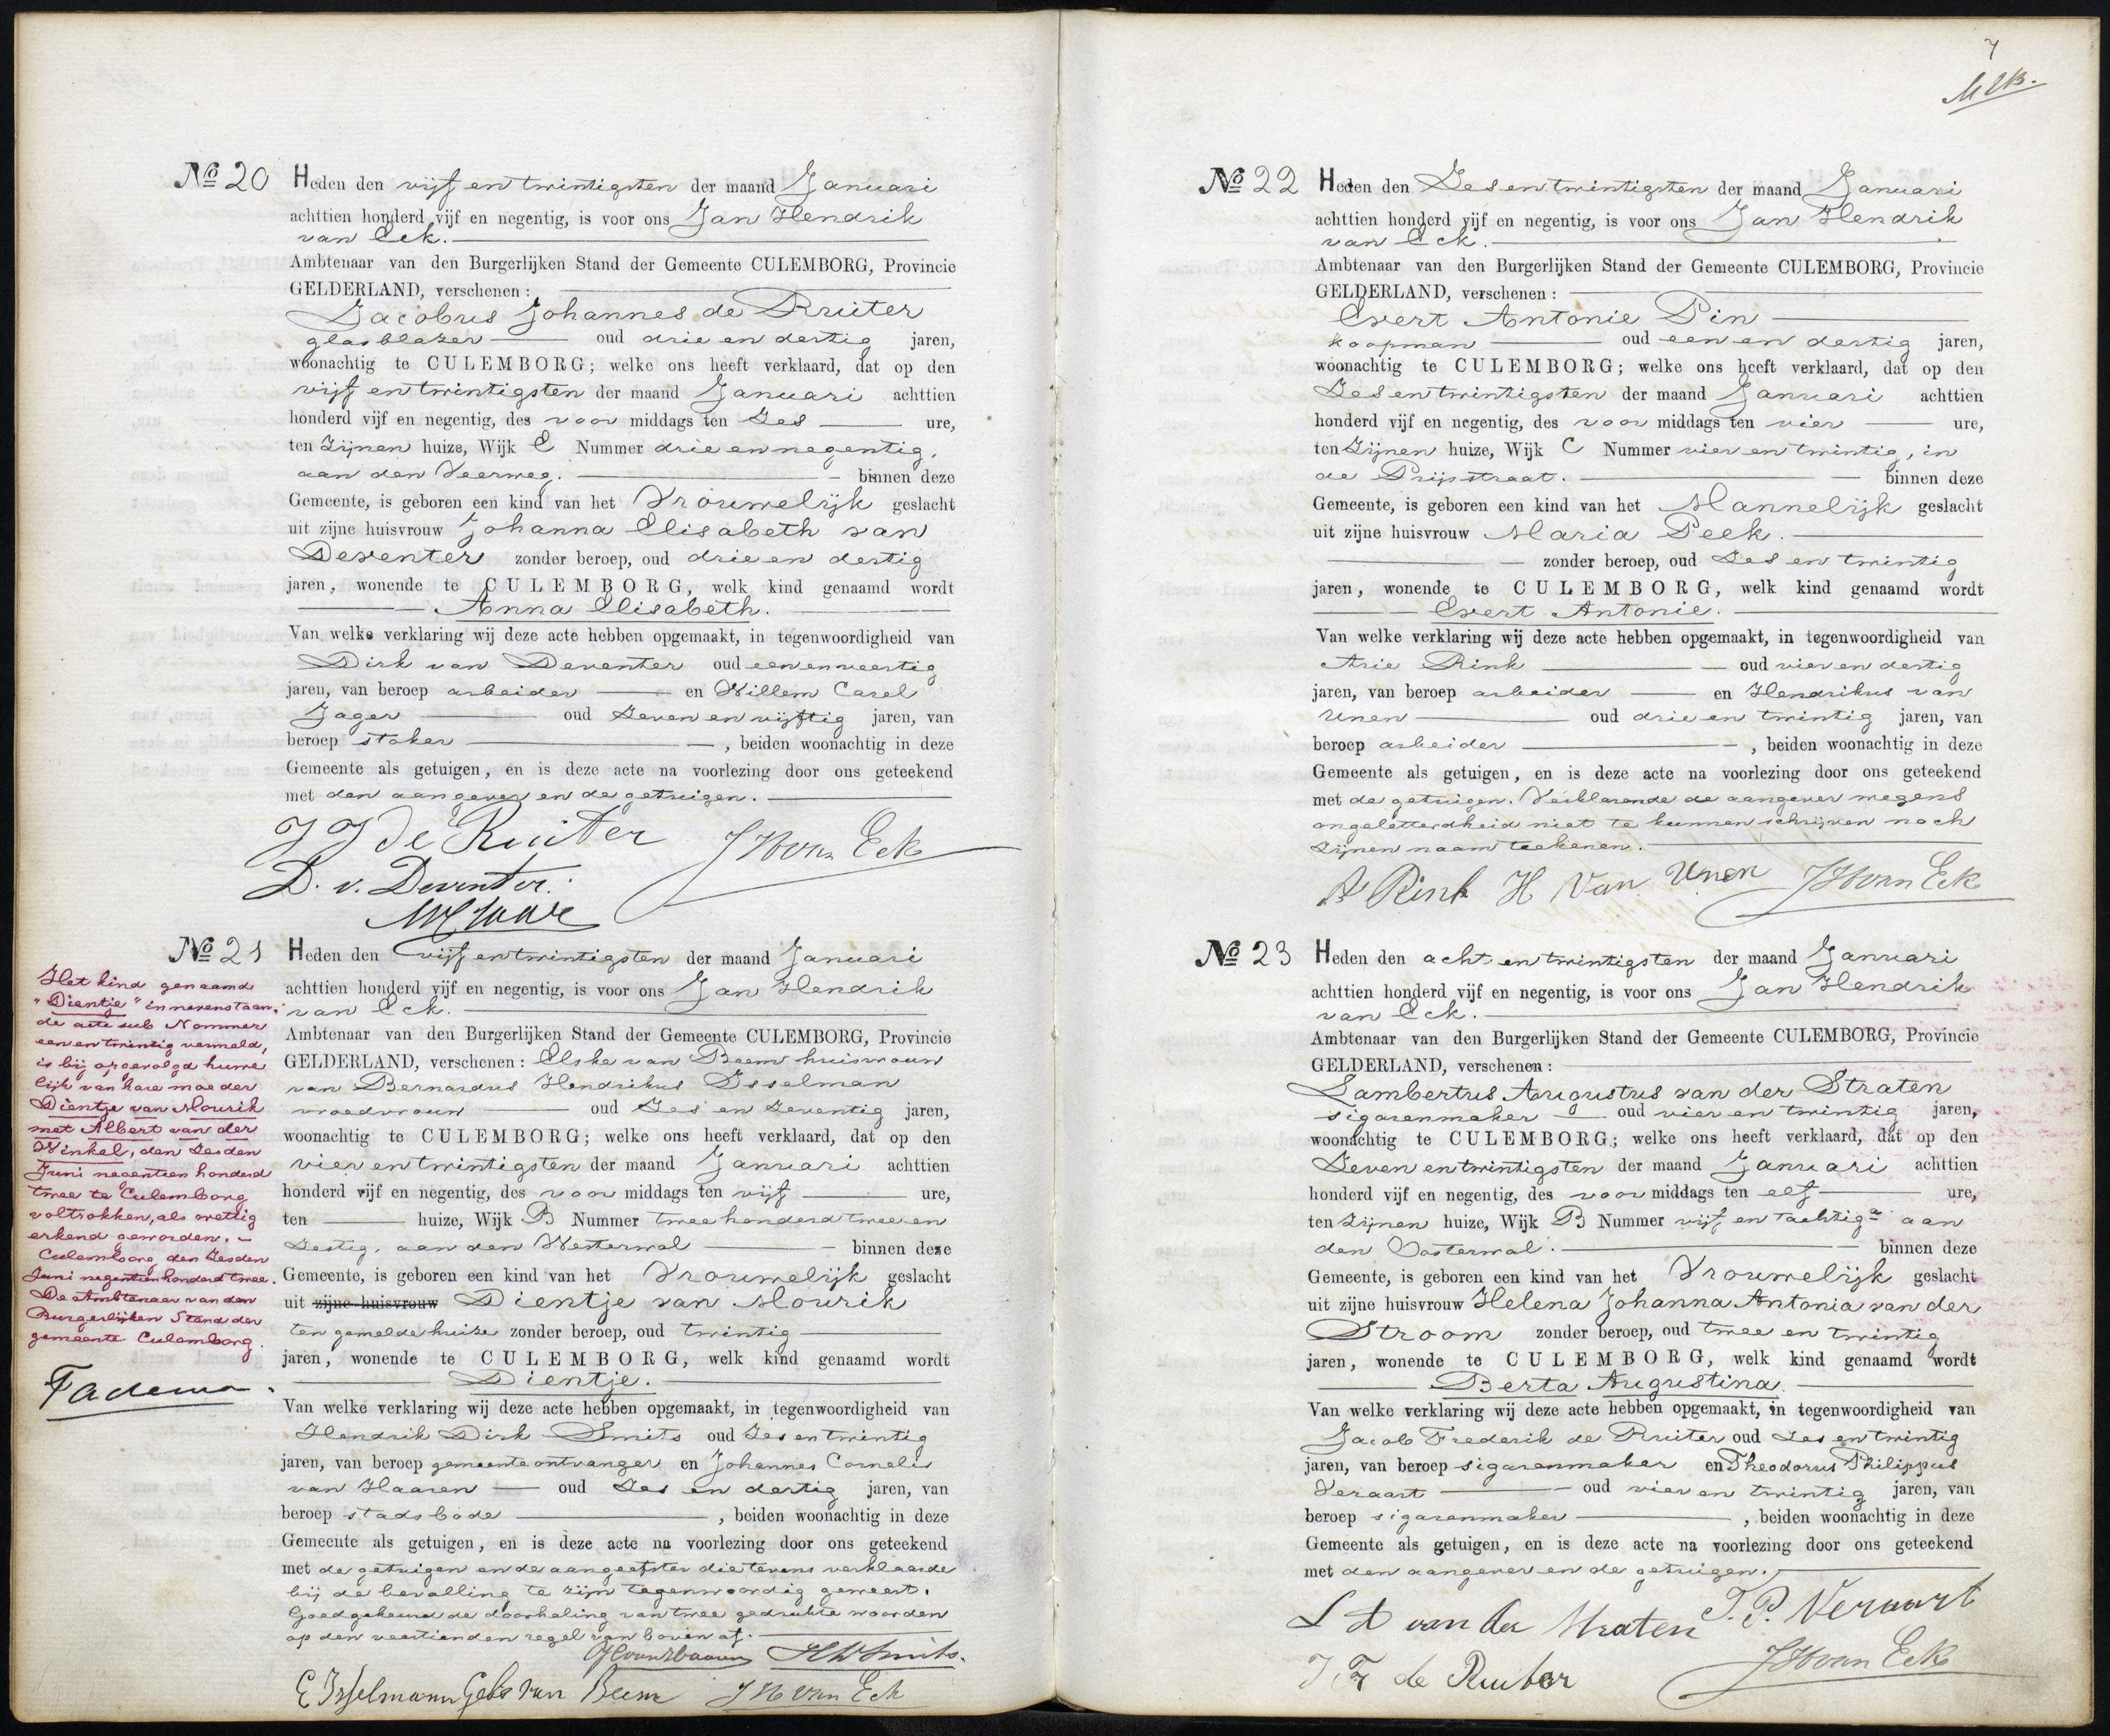 No 20 Heden den vijf en twintigsten der maand Januari
achttien honderd vijf en negentig, is voor ons Jan Hendrik
van Eck.
Ambtenaar van den Burgerlijken Stand der Gemeente CULEMBORG, Provincie
GELDERLAND, verschenen :
Jacobus Johannes de Ruiter
glasblazer oud drie en dertig jaren,
woonachtig te CULEMBORG; welke ons heeft verklaard, dat op den
vijf en twintigsten der maand Januari achttien
honderd vijf en negentig, des voor middags ten Zes ure,
ten Zijnen huize, Wijk E Nummer drie en negentig,
aan den Veerweg. binnen deze
Gemeente, is geboren een kind van het Vrouwelijk geslacht
uit zijne huisvrouw Johanna Elisabeth van
Deventer zonder beroep, oud drie en dertig
jaren, wonende te CULEMBORG, welk kind genaamd wordt
Anna Elisabeth.
Van welke verklaring wij deze acte hebben opgemaakt, in tegenwoordigheid van
Dirk van Deventer oud een en veertig
jaren, van beroep arbeider en Willem Carel
Jager oud Zeven en vijftig jaren, van
beroep stoker , beiden woonachtig in deze
Gemeente als getuigen, en is deze acte na voorlezing door ons geteekend
met den aangever en de getuigen.
J J de Ruiter JHvan Eck
D. v. Deventer.
No 21 Heden den vijf en twintigsten der maand Januari
achttien honderd vijf en negentig, is voor ons Jan Hendrik
van Eck.
Ambtenaar van den Burgerlijken Stand der Gemeente CULEMBORG, Provincie
GELDERLAND, verschenen : Elske van Beem huisvrouw
van Bernardus Hendrikus IJsselman
vroedvrouw oud Zes en Zeventig jaren,
woonachtig te CULEMBORG; welke ons heeft verklaard, dat op den
vier en twintigsten der maand Januari achttien
honderd vijf en negentig, des voor middags ten vijf ure,
ten huize, Wijk B Nummer twee honderd twee en
Zestig, aan den Westerwal binnen deze
Gemeente, is geboren een kind van het Vrouwelijk geslacht
uit zijne huisvrouw Dientje van Mourik
ten gemelde huize zonder beroep, oud twintig
jaren, wonende te CULEMBORG, welk kind genaamd wordt
Dientje.
Van welke verklaring wij deze acte hebben opgemaakt, in tegenwoordigheid van
Hendrik Dirk Smits oud Zes en twintig
jaren, van beroep gemeente ontvanger en Johannes Cornelis
van Haaren oud Zes en dertig jaren, van
beroep stadsbode , beiden woonachtig in deze
Gemeente als getuigen, en is deze acte na voorlezing door ons geteekend
met de getuigen en de aangeefster die tevens verklaarde
bij de bevalling te zijn tegenwoordig geweest.
Goedgekeurd de doorhaling van twee gedrukte woorden
op den veertienden regel van boven af.
JCvanHaaren HDSmits.
E IJsselmann Geb van Beem JHvan Eck
Het kind genaamd
"Dientje" in nevenstaan-
de acte sub Nommer
een en twintig vermeld,
is bij opgevolgd huwe
lijk van hare moeder
Dientje van Mourik
met Albert van der
Winkel, den Zesden
Juni negentien honderd
twee te Culemborg
voltrokken, als wettig
erkend geworden.
Culemborg den Zesden
Juni negentienhonderd twee.
De Ambtenaar van den
Burgerlijken Stand der
gemeente Culemborg.
Fadema.
7
No 22 Heden den Zes en twintigsten der maand Januari
achttien honderd vijf en negentig, is voor ons Jan Hendrik
van Eck.
Ambtenaar van den Burgerlijken Stand der Gemeente CULEMBORG, Provincie
GELDERLAND, verschenen :
Evert Antonie Pin
koopman oud een en dertig jaren,
woonachtig te CULEMBORG; welke ons heeft verklaard, dat op den
Zes en twintigsten der maand Januari achttien
honderd vijf en negentig, des voor middags ten vier ure,
ten Zijnen huize, Wijk C Nummer vier en twintig, in
de Prijsstraat. binnen deze
Gemeente, is geboren een kind van het Mannelijk geslacht
uit zijne huisvrouw Maria Peek.
zonder beroep, oud Zes en twintig
jaren, wonende te CULEMBORG, welk kind genaamd wordt
Evert Antonie.
Van welke verklaring wij deze acte hebben opgemaakt, in tegenwoordigheid van
Arie Rink oud vier en dertig
jaren, van beroep arbeider en Hendrikus van
Unen oud drie en twintig jaren, van
beroep arbeider , beiden woonachtig in deze
Gemeente als getuigen, en is deze acte na voorlezing door ons geteekend
met de getuigen. Verklarende de aangever wegens
ongeletterdheid niet te kunnen schrijven noch
Zijnen naam teekenen.
A Rink H Van Unen JHvan Eck
No 23 Heden den acht en twintigsten der maand Januari
achttien honderd vijf en negentig, is voor ons Jan Hendrik
van Eck.
Ambtenaar van den Burgerlijken Stand der Gemeente CULEMBORG, Provincie
GELDERLAND, verschenen :
Lambertus Augustus van der Straten
sigarenmaker oud vier en twintig jaren,
woonachtig te CULEMBORG; welke ons heeft verklaard, dat op den
Zeven en twintigsten der maand Januari achttien
honderd vijf en negentig, des voor middags ten elf ure,
ten Zijnen huize, Wijk B Nummer vijf en tachtig a aan
den Oosterwal. binnen deze
Gemeente, is geboren een kind van het Vrouwelijk geslacht
uit zijne huisvrouw Helena Johanna Antonia van der
Stroom zonder beroep, oud twee en twintig
jaren, wonende te CULEMBORG, welk kind genaamd wordt
Berta Augustina.
Van welke verklaring wij deze acte hebben opgemaakt, in tegenwoordigheid van
Jacob Frederik de Ruiter oud Zes en twintig
jaren, van beroep sigarenmaker en Theodorus Philippus
Veraart oud vier en twintig jaren, van
beroep sigarenmaker , beiden woonachtig in deze
Gemeente als getuigen, en is deze acte na voorlezing door ons geteekend
met den aangever en de getuigen.
L A van der Straten T. P. Veraart
J F de Ruiter JHvan Eck